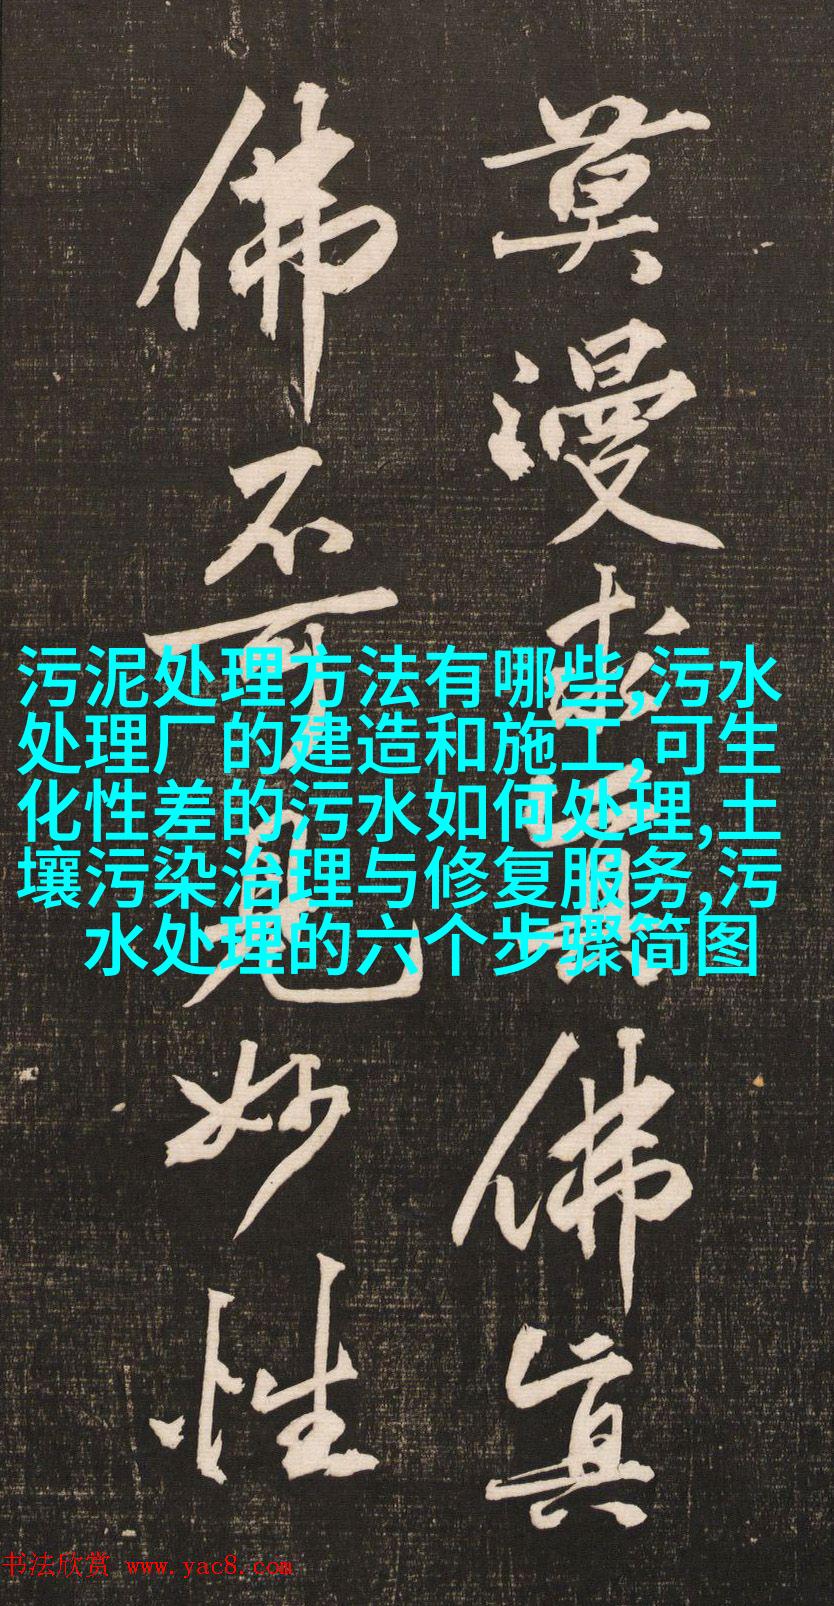 莫漫求真佛真
佛不可見妙性
污泥处理方法有哪些,污水
处理厂的建造和施工,可生
化性差的污水如何处理,土
壤污染治理与修复服务,污
水处理的六个步骤简图
书法欣赏 www.yac8.com